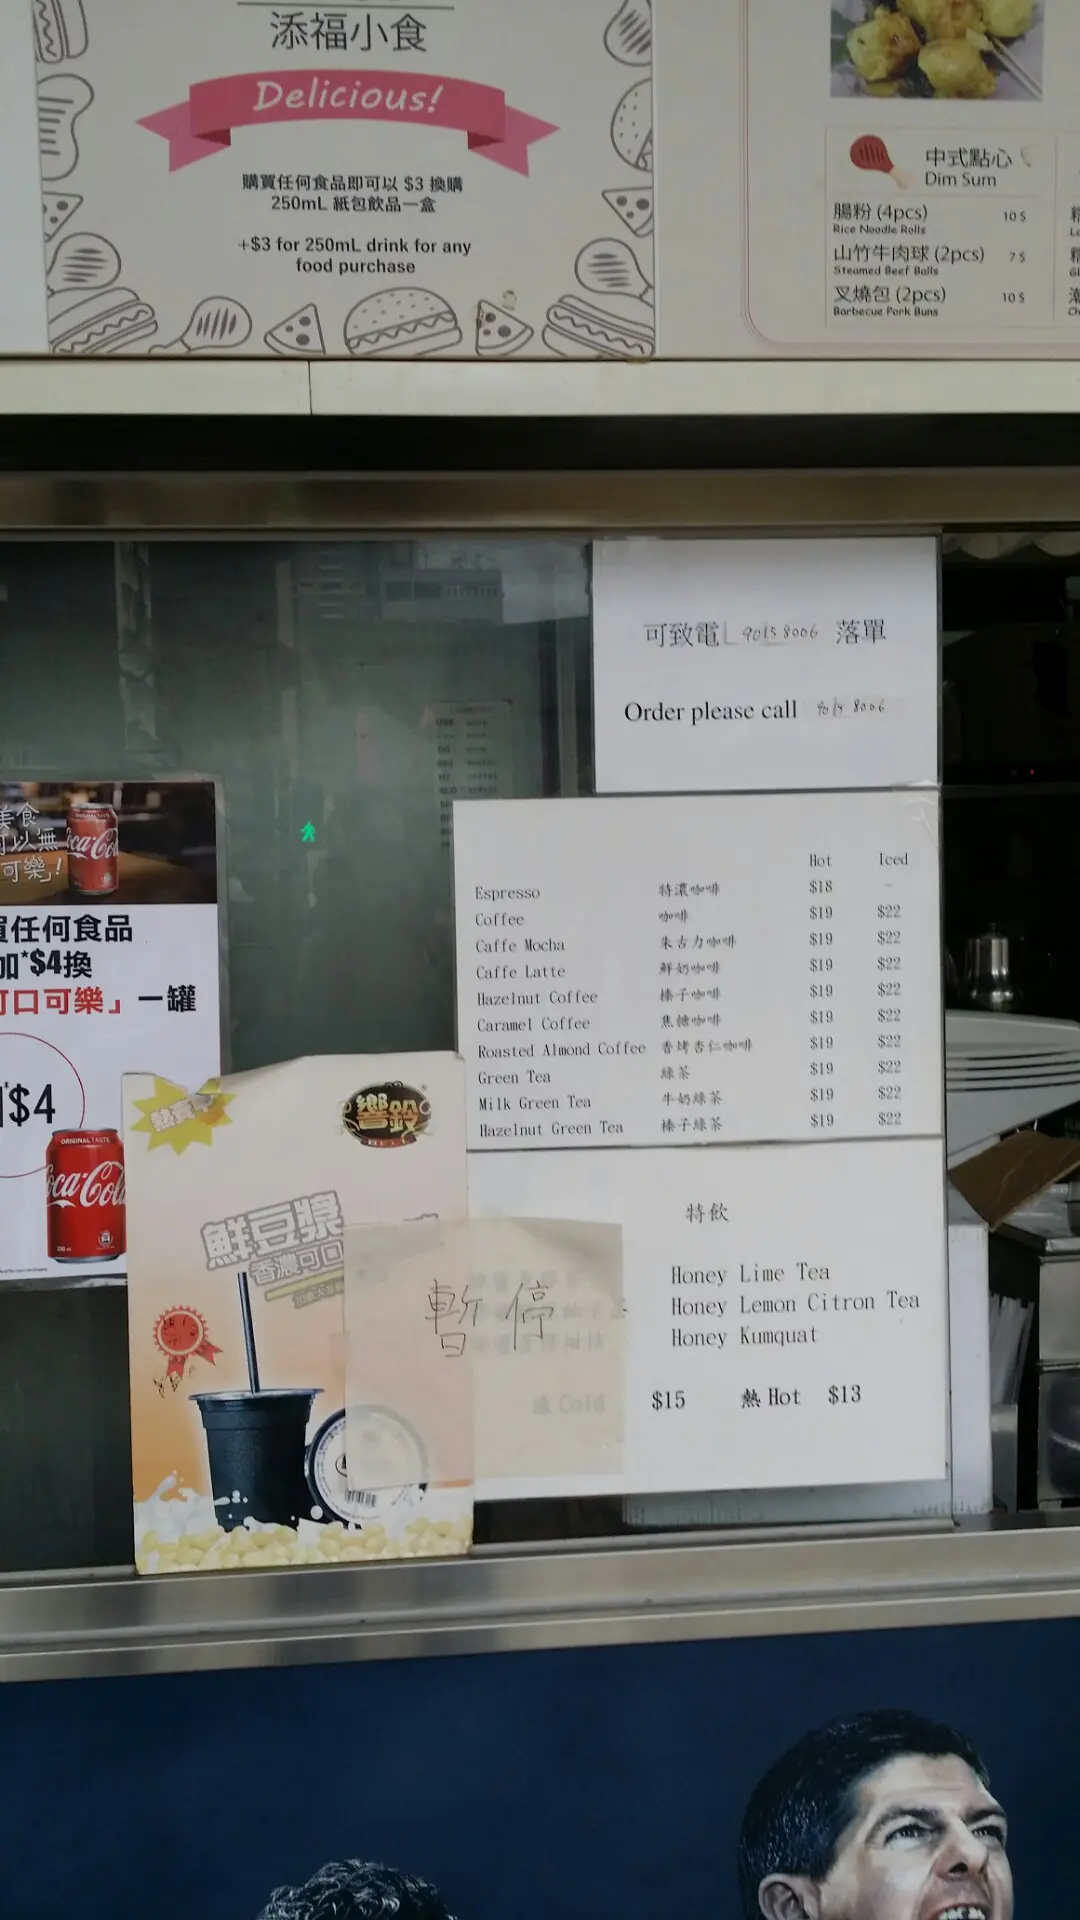 添福小食
Delicious!
購買任何食品即可以 $3 換購
250mL 紙包飲品一盒
+$3 for 250mL drink for any
food purchase
中式點心
Dim Sum
腸粉 (4pcs) 10 $
Rice Noodle Rolls
山竹牛肉球 (2pcs) 7 $
Steamed Beef Balls
叉燒包 (2pcs) 10 $
Barbecue Pork Buns
可致電 9015 8006 落單
Order please call 8006
美食
可以無
可樂!
Coca-Cola
買任何食品
加*$4換
可口可樂」一罐
$4
ORIGINAL TASTE
Coca-Cola
Hot Iced
Espresso 特濃咖啡 $18 –
Coffee 咖啡 $19 $22
Caffe Mocha 朱古力咖啡 $19 $22
Caffe Latte 鮮奶咖啡 $19 $22
Hazelnut Coffee 榛子咖啡 $19 $22
Caramel Coffee 焦糖咖啡 $19 $22
Roasted Almond Coffee 香烤杏仁咖啡 $19 $22
Green Tea 綠茶 $19 $22
Milk Green Tea 牛奶綠茶 $19 $22
Hazelnut Green Tea 榛子綠茶 $19 $22
熱賣中
響鈴
BELL
鮮豆漿
香濃可口
暫停
特飲
Honey Lime Tea
Honey Lemon Citron Tea
Honey Kumquat
Cold $15 熱 Hot $13